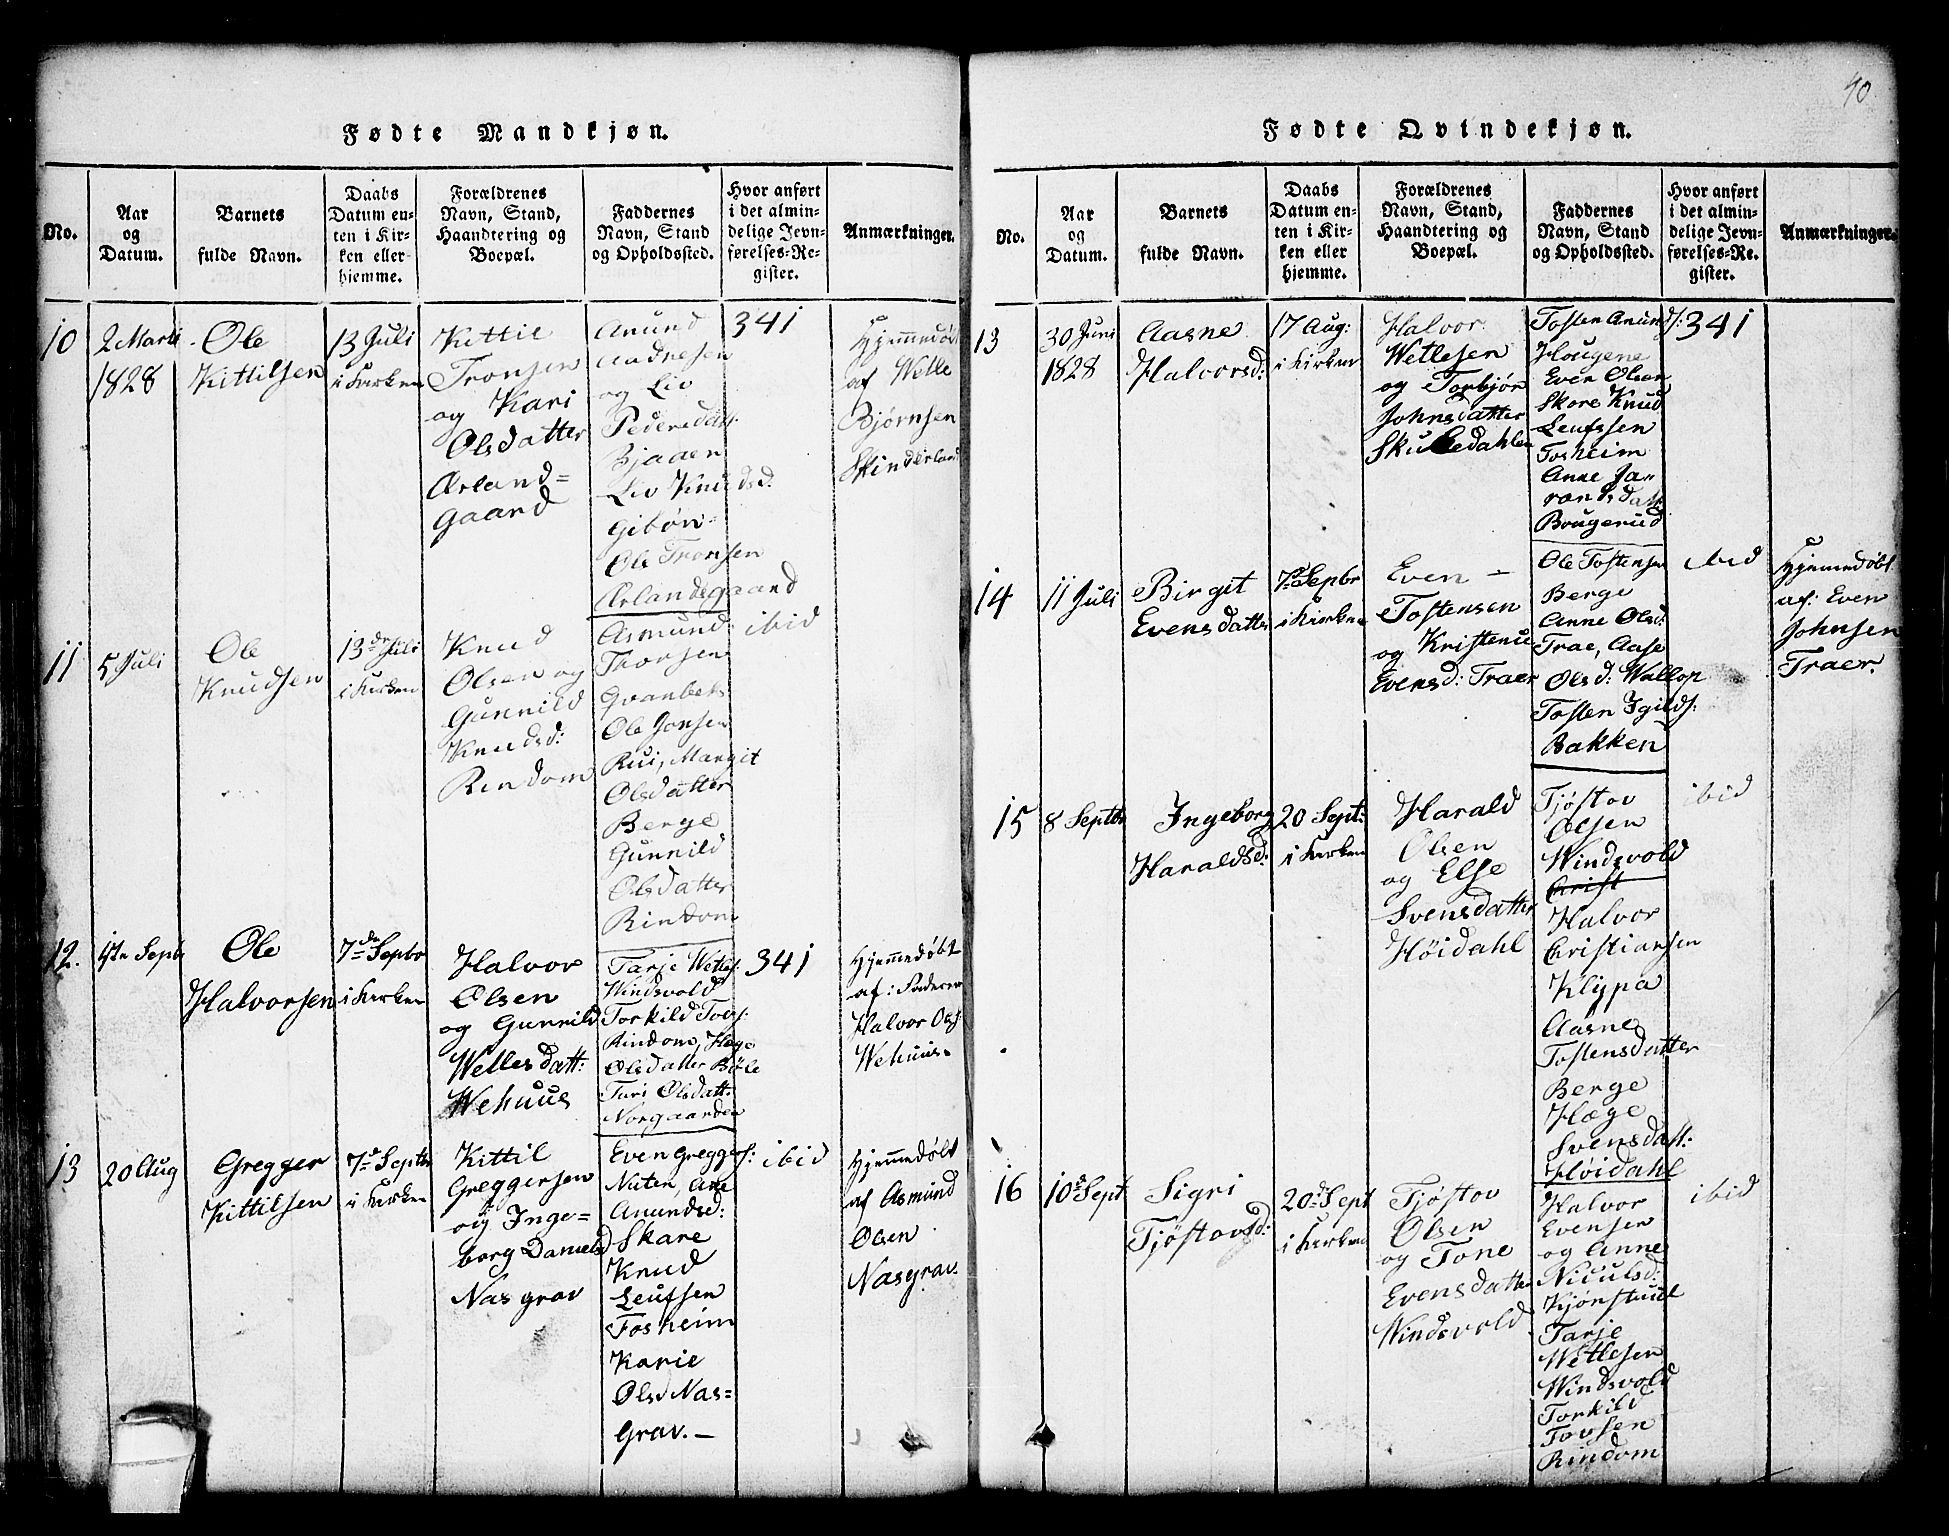 40
Fødte Mandkjøn.
No.
Aar
og
Datum.
Barnets
fulde Navn.
Daabs
Datum en-
ten i Kir-
ken eller
hjemme.
Forældrenes
Navn, Stand,
Haandtering og
Boepæl.
Faddernes
Navn, Stand
og Opholdssted.
Hvor anført
i det almin-
delige Jevn-
førelses-Re-
gister.
Anmærkninger.
10
2 Marti
1828
Ole
Kittilsen
13 Juli
i Kirken
Kittil
Tronsen
og Kari
Olsdatter
Ærland=
gaard
Anund
Aadnesen
og Liv
Pedersdatt:
Bjaaen
Liv Knudsd:
Gibøn-
Ole Tronsen
Ærlandsgaard
341
Hjemmedøbt
af Wetle
Bjørnsen
Skinderland
11
5 Juli
Ole
Knudsen
13de Juli
i Kirken
Knud
Olsen og
Gunnild
Knudsd:
Rindom
Asmund:
Thorsen
Granbek:
Ole Jonsen
Rui, Margit
Olsdatter
Berge
Gunnild
Olsdatter
Rindom
ibid
12.
1te Septb
Ole
Halvorsen
7de Septbr
i Kirken
Halvor
Olsen
og Gunnild
Wetlesdatt:
Wehuus
Tarje Wetles:
Windsvold
Torkild Tovs:
Rindom, Hæge
Olsdatter Bøle
Turi Olsdatt:
Norgaarden
341
Hjemmedøbt
af: Faderen
Halvor Ols:
Wehuus.
13
20 Aug
Gregger
Kittilsen
7de Septbr
i Kirken
Kittil
Greggersen
og Inge=
borg Danielsd
Nasgrav
Even Greggers:
Nuten, Ane
Anundsd:
Skare
Knud
Leufsen
Fosheim
Karie
Olsd Nas=
Grav.-
ibid
Hjemmedøbt
af Asmund
Olsen
Nasgrav.
Fødte Qvindekjøn.
No.
Aar
og
Datum.
Barnets
fulde Navn.
Daabs
Datum en-
ten i Kir-
ken eller
hjemme.
Forældrenes
Navn, Stand,
Haandtering og
Boepæl.
Faddernes
Navn, Stand
og Opholdssted.
Hvor anført
i det almin-
delige Jevn-
førelses-Re-
gister.
Anmærkninger.
13
30 Juni
1828
Aasne
Halvorsd:
17 Aug:
i Kirken
Halvor
Wetlesen
og Torbjør
Johnsdatter
Skuledahlen
Tosten Anunds:
Hougene
Even Olsen
Skore Knud
Leufssen
Fosheim
Anne Ja-
randsdatt
Bougerud
341
14
11 Juli
Birgit
Evensdatter
7de Septbr
i Kirken
Even -
Tostensen
og Kristenu
Evensd: Traer
Ole Tostensen
Berge
Anne Olsd:
Trae, Aase
Olsd: Wallop
Tosten Igilds:
Bakken
ibid
Hjemedøbt
af: Even
Johnsen
Traer.
15
8 Septbr
Ingeborg
Haraldsd:
20 Sept:
i Kirken
Harald
Olsen
og Else
Svensdatter
Høidahl
Tjøstov
Olsen
Windsvold
Christ
Halvor
Christiansen
Klypa
Aasne
Tostensdatter
Berge
Hæge
Svensdatt:
Høidahl
ibid
16
10de Sept
Sigri
Tjøstovsd:
20de Sept
i Kirken
Tjøstov
Olsen
og Tone
Evensdatter
Windsvold
Halvor
Evensen
og Anne
Niculsd:
Kjønstuul
Tarje
Wetlesen
Windsvold
Torkild
Tovsen
Rindom
ibid